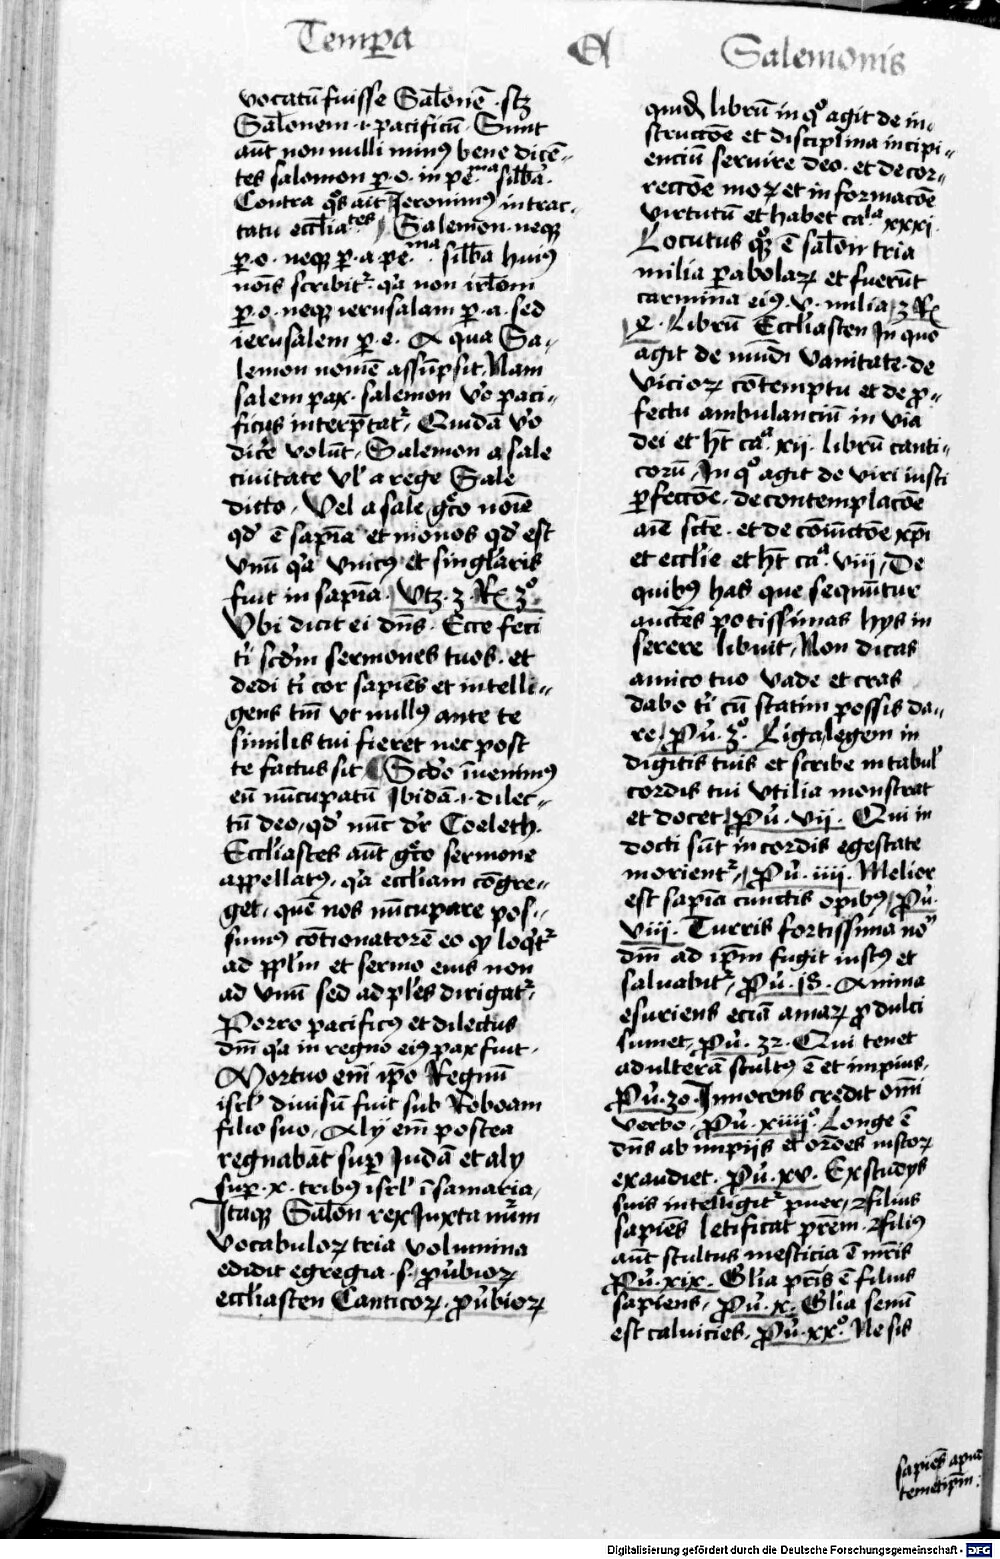 Temp̄a A Salemonis
vocatū fuisse Salōnē · scz
Salōnem ·i· pacificū · Sunt
aūt non nulli minꝰ bene dicē=
tes salomon ꝑ ·o· in pe͞ᵐᵃ silƀa ·
Contra qͦs ait Jeronimꝰ in trac=
tatu eccl̄iaᵗᵉˢ / Salemon neqꝫ
ꝑ ·o· neqꝫ ꝑ ·a· pe͞ᵐᵃ silƀa huiꝰ
nōis scribit᷑ · qͣ non ir̄lom
ꝑ ·o· neqꝫ ierusalam ꝑ ·a· sed
ierusalem ꝑ ·e· A qua Sa=
lemon nomē assūpsit · Nam
salem pax · salemon v̾o paci=
ficus interp̄tat᷑ · Quidā v̾o
dic̾e volūt · Salemon a sale
ciuitate vl̾ a rege Sale
dicto / Vel a sale gͨco noīe
qd̾ ē sapīa et monos qd̾ est
vnū qͣ vnicꝰ et singl̾aris
fuit in sapīa · vtꝫ · 3 · Rͤ · 3º
Vbi dicit ei dn̄s · Ecce feci
ti̾ scd̾m sermones tuos · et
dedi ti̾ cor sapiēs et intelli=
gens tm̄ vt nullꝰ ante te
similis tui fieret nec post
te factus sit Scd̾o īuenimꝰ
eū nūcupatū Ibidā ·i· dilec=
tū deo / qd̾ nūc dr̾ Coeleth ·
Eccl̾iastes aūt gͨco sermone
appellatꝰ · qͣ eccl̾iam cōgre=
get · quē nos nūcupare pos=
sumꝰ cōtionatorē eo ꝙ loqͭt᷑
ad ppl̾m et sermo eius non
ad vnū sed ad pl̾es dirigat᷑ ·
Porro pacificꝰ et dilectus
dn̄i qͣ in regno eiꝰ pax fuit ·
Mortuo em̄ ip̄o Regnū
isrl̾ diuisū fuit sub Roboam
filio suo / Aly em̄ postea
regnabāt suꝑ Judā et aly
suꝑ ·x· tribꝰ isrl̾ ī samaria /
Itaqꝫ Salōn rex Juxta nūm
vocabuloꝝ tria volumina
edidit egregia ·s· ꝓu̾bioꝝ
eccl̾iasten Canticoꝝ · ꝓu̾bioꝝ
quid̾ librū in qͦ agit de in=
structōe et disciplina incipi=
enciū seruire deo · et de cor=
rectōe moꝝ et in formacōe
virtutū et habet caˡᵃ xxxi ·
Locutus qͦꝫ ē salōn tria
milia ꝑabolaꝝ et fuerūt
carmina eiꝰ ·v· milia / 3 Rͤ
Librū Eccl̾iasten In quo
agit de mūdi vanitate · de
vicioꝝ cōtemptu et de ꝓ=
fectu ambulanciū in via
dei et ht̄ caᵃ xii · librū canti=
corū / In qͦ agit de viri iusti
ꝑfectōe · de contemplacōe
aīe scē · et de cōiūctōe xp̄i
et eccl̾ie et ht̄ caᵃ viii / De
quibꝰ has que sequūtur
auctēs potissimas hys in
serere libuit / Non dicas
amico tuo vade et cras
dabo ti̾ cū statim possis da=
re / ꝓu̾ · 3º Liga legem in
digitis tuis et scribe in tabul̾
cordis tui vtilia monstrat
et docet / ꝓu̾ · vii · Qui in
docti sūt in cordis egestate
morient᷑ / ꝓu̾ · iiii · Melior
est sapīa cunctis opibꝰ / ꝓu̾ ·
viii · Turris fortissima nō
dn̄i ad ip̄m fugit iustꝰ et
saluabit᷑ / ꝓu̾ · 18 · Anima
esuriens eciā amaꝝ ꝓ dulci
sumet / ꝓu̾ · 32 · Qui tenet
adulterā stultꝰ ē et impius ·
ꝓu̾ · 30 · Innocens credit om̄i
verbo / ꝓu̾ · xiiijº · Longe ē
dn̄s ab impijs et or̄oēs iustoꝝ
exaudiet · ꝓu̾ · xv · Ex studys
suis intelligit᷑ puer / filius
sapiēs letificat pr̄em · filiꝰ
aūt stultus mesticia ē mr̄is
ꝓu̾ · xix · Glīa pr̄is ē filius
sapiens / ꝓu̾ · x · Glīa senū
est caluicies / ꝓu̾ · xxº · Ne sis
sapiēs apud
temetip̄m ·
Digitalisierung gefördert durch die Deutsche Forschungsgemeinschaft - DFG